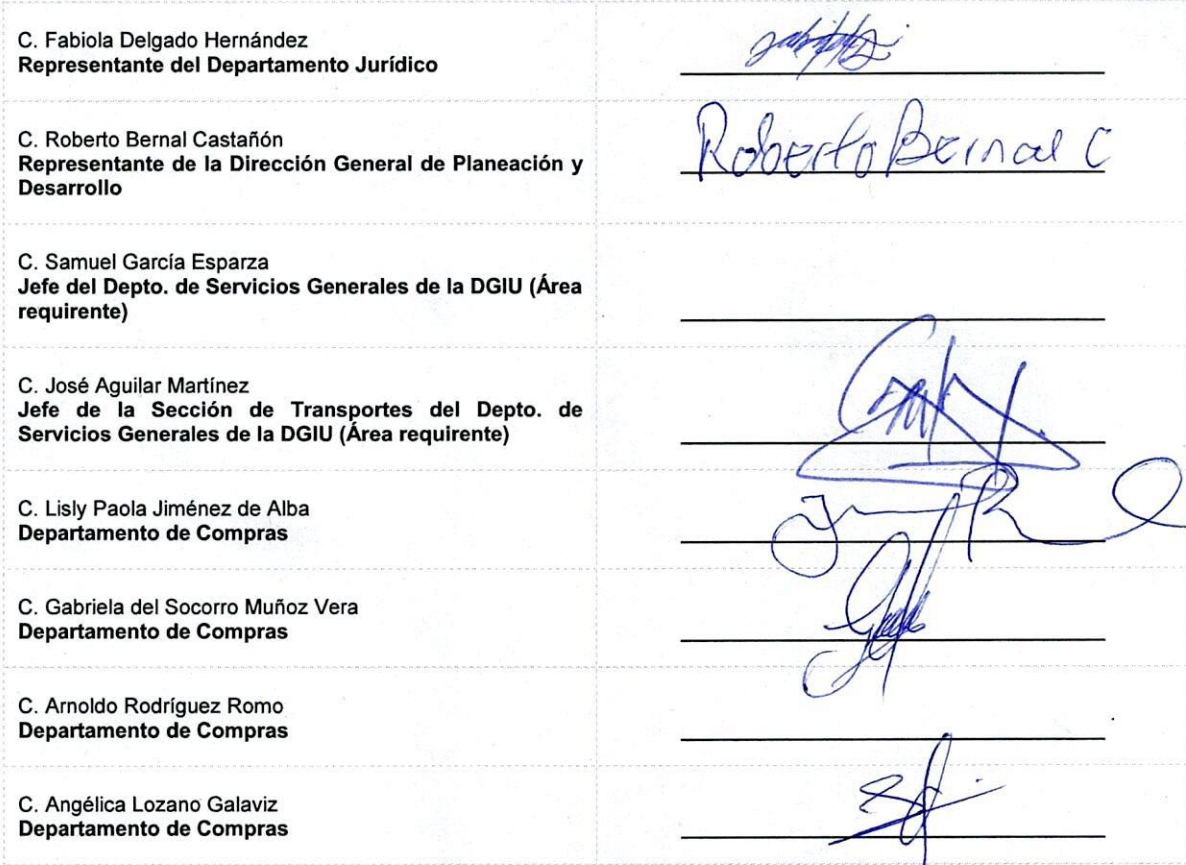 C. Fabiola Delgado Hernández
Representante del Departamento Jurídico
C. Roberto Bernal Castañón
Representante de la Dirección General de Planeación y
Desarrollo
Roberto Bernal C
C. Samuel García Esparza
Jefe del Depto. de Servicios Generales de la DGIU (Área
requirente)
C. José Aguilar Martínez
Jefe de la Sección de Transportes del Depto. de
Servicios Generales de la DGIU (Área requirente)
C. Lisly Paola Jiménez de Alba
Departamento de Compras
C. Gabriela del Socorro Muñoz Vera
Departamento de Compras
C. Arnoldo Rodríguez Romo
Departamento de Compras
C. Angélica Lozano Galaviz
Departamento de Compras